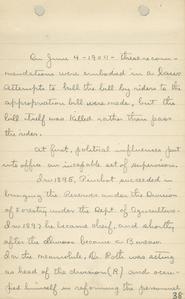 On June 4 - 1900 - these recom-
mendations were embodied in a Law.
Attempts to kill the bill by riders to the
appropriation bill were made, but the
bill itself was killed rather than pass
the rider.
At first, political influences put
into office an incapable set of supervisors.
In 1898, Pinchot succeeded in
bringing the Reserves under the Division
of Forestry under the Dept. of Agriculture.
In 1897 he became chief, and shortly
after the division became a Bureau.
In the meanwhile, Dr. Roth was acting
as head of the division (R) and occu-
pied himself in reforming the personnel